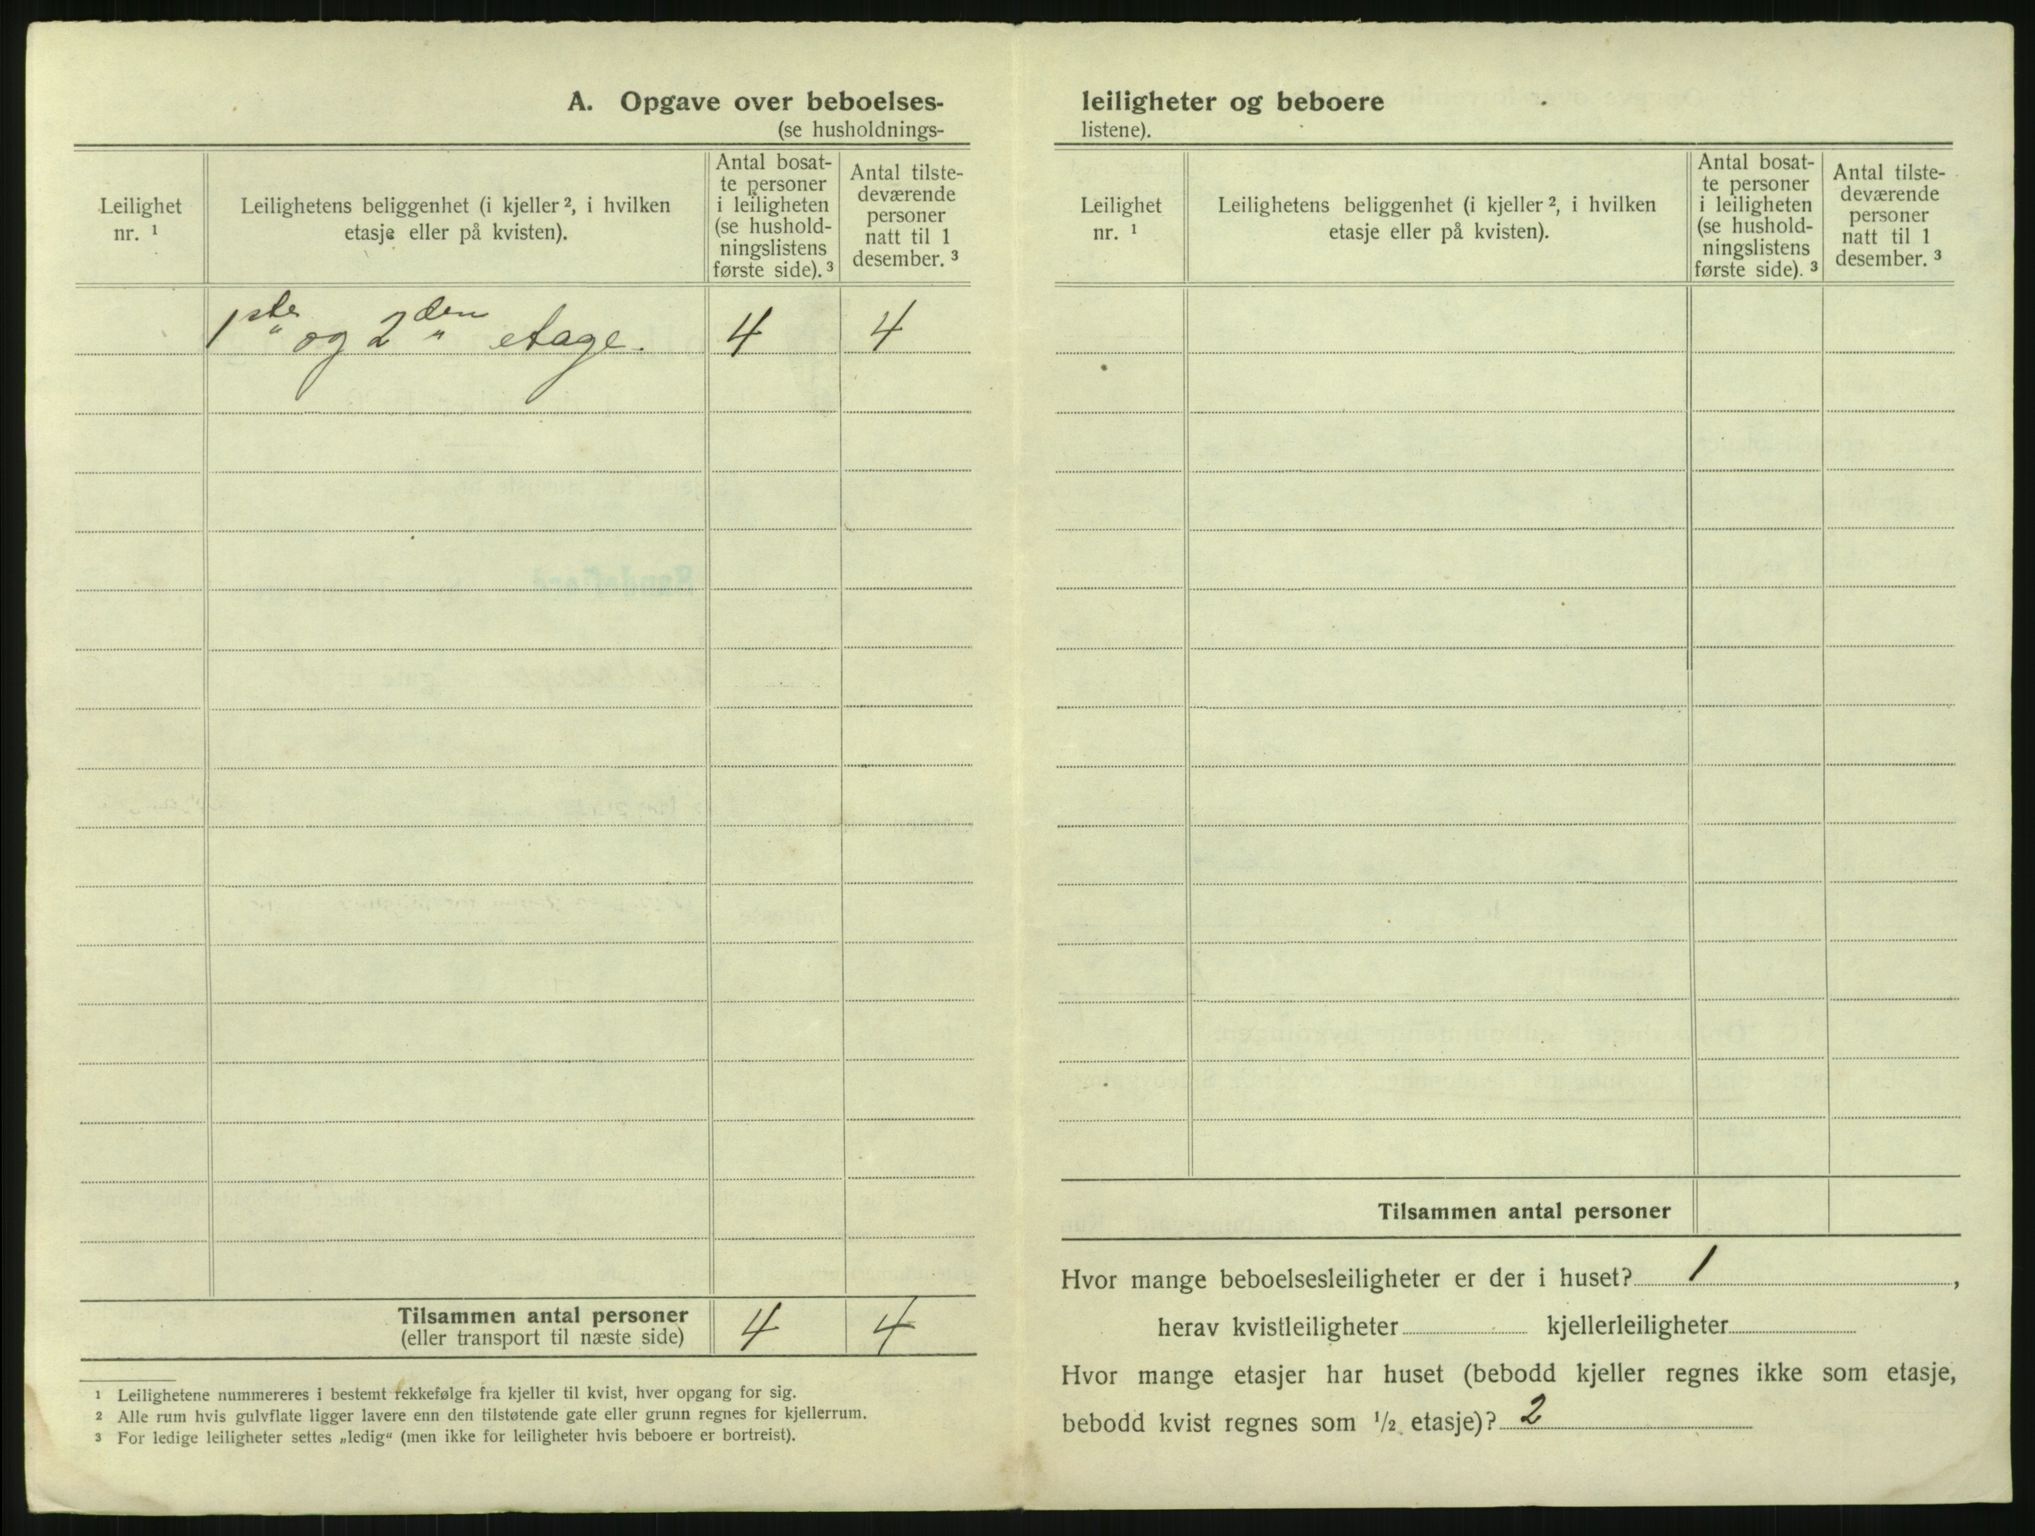 A. Opgave over beboelses-
(se husholdnings-
Leilighet
nr. ¹
Leilighetens beliggenhet (i kjeller ², i hvilken
etasje eller på kvisten).
Antal bosat-
te personer
i leiligheten
(se hushold-
ningslistens
første side). ³
Antal tilste-
deværende
personer
natt til 1
desember. ³
1ste og 2den etage. 4 4
Tilsammen antal personer 4 4
(eller transport til næste side)
¹ Leilighetene nummereres i bestemt rekkefølge fra kjeller til kvist, hver opgang for sig.
² Alle rum hvis gulvflate ligger lavere enn den tilstøtende gate eller grunn regnes for kjellerrum.
³ For ledige leiligheter settes „ledig“ (men ikke for leiligheter hvis beboere er bortreist).
leiligheter og beboere
listene).
Leilighet
nr. ¹
Leilighetens beliggenhet (i kjeller ², i hvilken
etasje eller på kvisten).
Antal bosat-
te personer
i leiligheten
(se hushold-
ningslistens
første side). ³
Antal tilste-
deværende
personer
natt til 1
desember. ³
Tilsammen antal personer
Hvor mange beboelsesleiligheter er der i huset? 1,
herav kvistleiligheter kjellerleiligheter
Hvor mange etasjer har huset (bebodd kjeller regnes ikke som etasje,
bebodd kvist regnes som ½ etasje)? 2